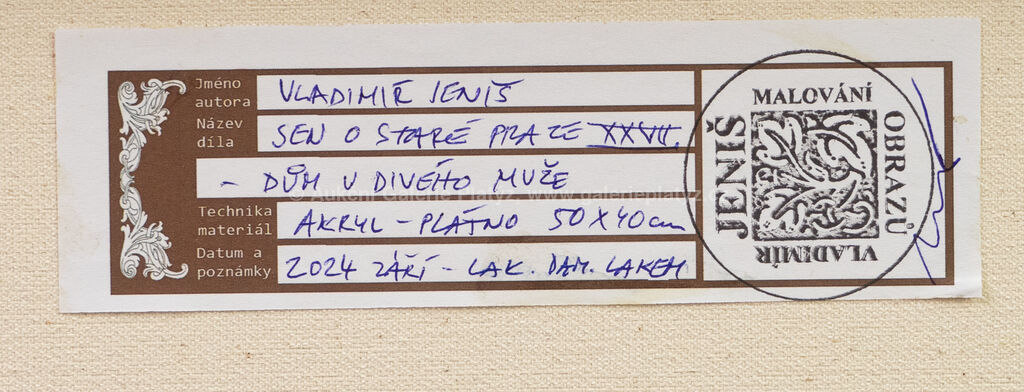 Jméno autora VLADIMÍR JENIŠ
Název díla SEN O STARÉ PRAZE XXVII.
- DŮM U DIVÉHO MUŽE
Technika materiál AKRYL - PLÁTNO 50X40cm
Datum a poznámky 2024 ZÁŘÍ - LAK. DAM. LAKEM
MALOVÁNÍ
OBRAZŮ
VLADIMÍR
JENIŠ